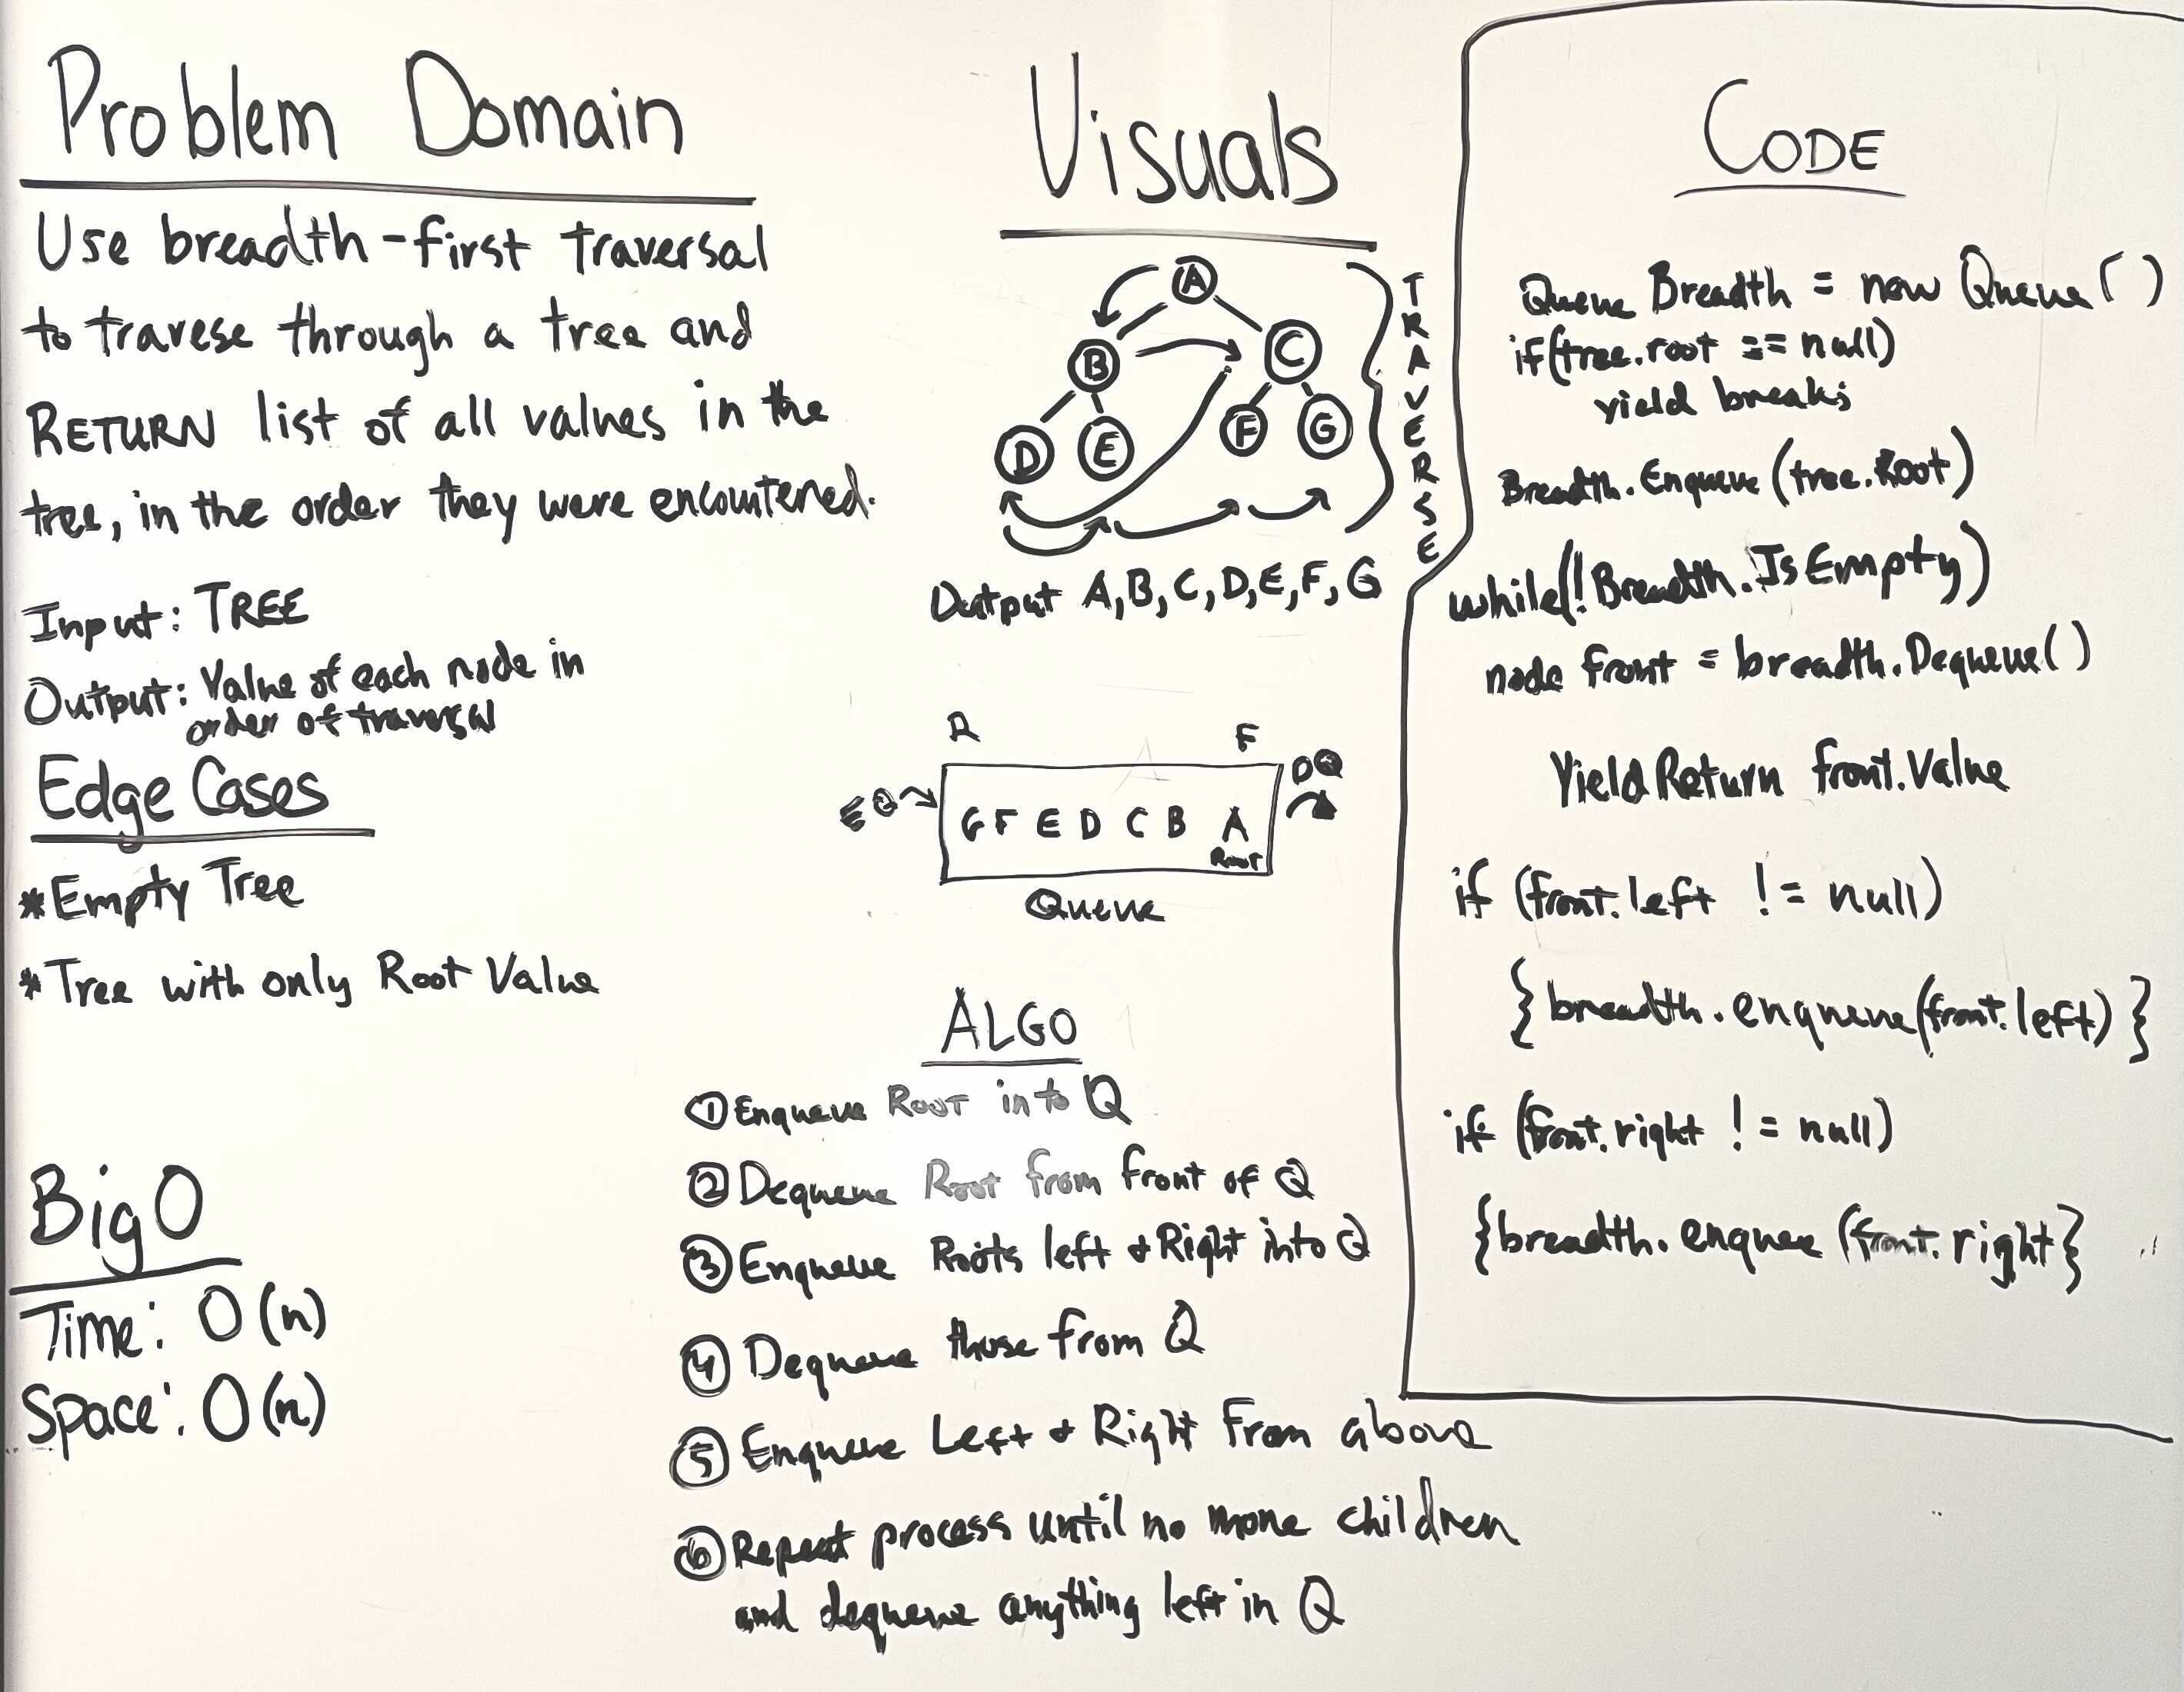 Problem Domain
Use breadth-first traversal
to travese through a tree and
RETURN list of all values in the
tree, in the order they were encountered.
Input: TREE
Output: Value of each node in
order of traversal
Edge Cases
*Empty Tree
*Tree with only Root Value
Big O
Time: O(n)
Space: O(n)
Visuals
A
B C
D E F G
TRAVERSE
Output A,B,C,D,E,F,G
R F
EQ DQ
G F E D C B A
Root
Queue
ALGO
① Enqueue Root into Q
② Dequeue Root from front of Q
③ Enqueue Roots left & Right into Q
④ Dequeue those from Q
⑤ Enqueue Left & Right From above
⑥ Repeat process until no more children
and dequeue anything left in Q
CODE
Queue Breadth = new Queue()
if(tree.root == null)
yield break;
Breadth.Enqueue(tree.Root)
while(!Breadth.IsEmpty)
node front = breadth.Dequeue()
Yield Return front.Value
if (front.left != null)
{breadth.enqueue(front.left)}
if (front.right != null)
{breadth.enquee (front.right}